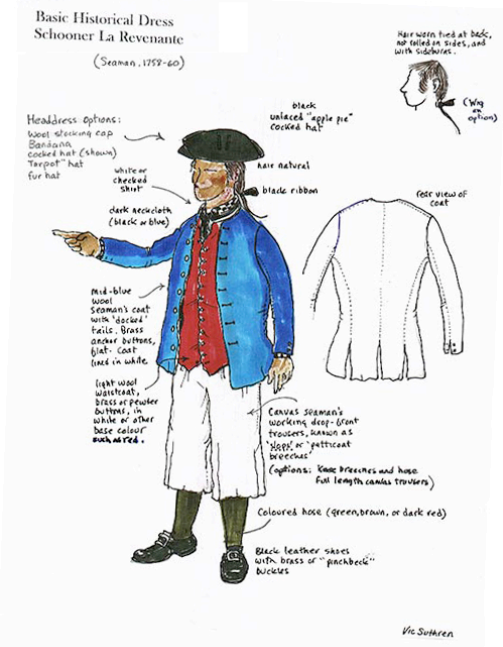 Basic Historical Dress
Schooner La Revenante
(Seaman, 1758-60)
Hair worn tied at back,
not rolled on sides, and
with sideburns.
(Wig
an
option)
Headdress options:
Wool stocking cap
Bandana
cocked hat (shown)
"Tarpot" hat
fur hat
black
unlaced "apple pie"
cocked hat
hair natural
black ribbon
white or
checked
shirt
dark neckcloth
(black or blue)
rear view of
coat
mid-blue
wool
seaman's coat
with 'docked'
tails. Brass
anchor buttons,
flat. Coat
lined in white
light wool
waistcoat,
brass or pewter
buttons, in
white or other
base colour
such as red.
Canvas seaman's
working drop-front
trousers, known as
'slops' or 'petticoat
breeches'
(options: Knee breeches and hose
full length canvas trousers)
Coloured hose (green, brown, or dark red)
Black leather shoes
with brass or "pinchbeck"
buckles
Vic Suthren